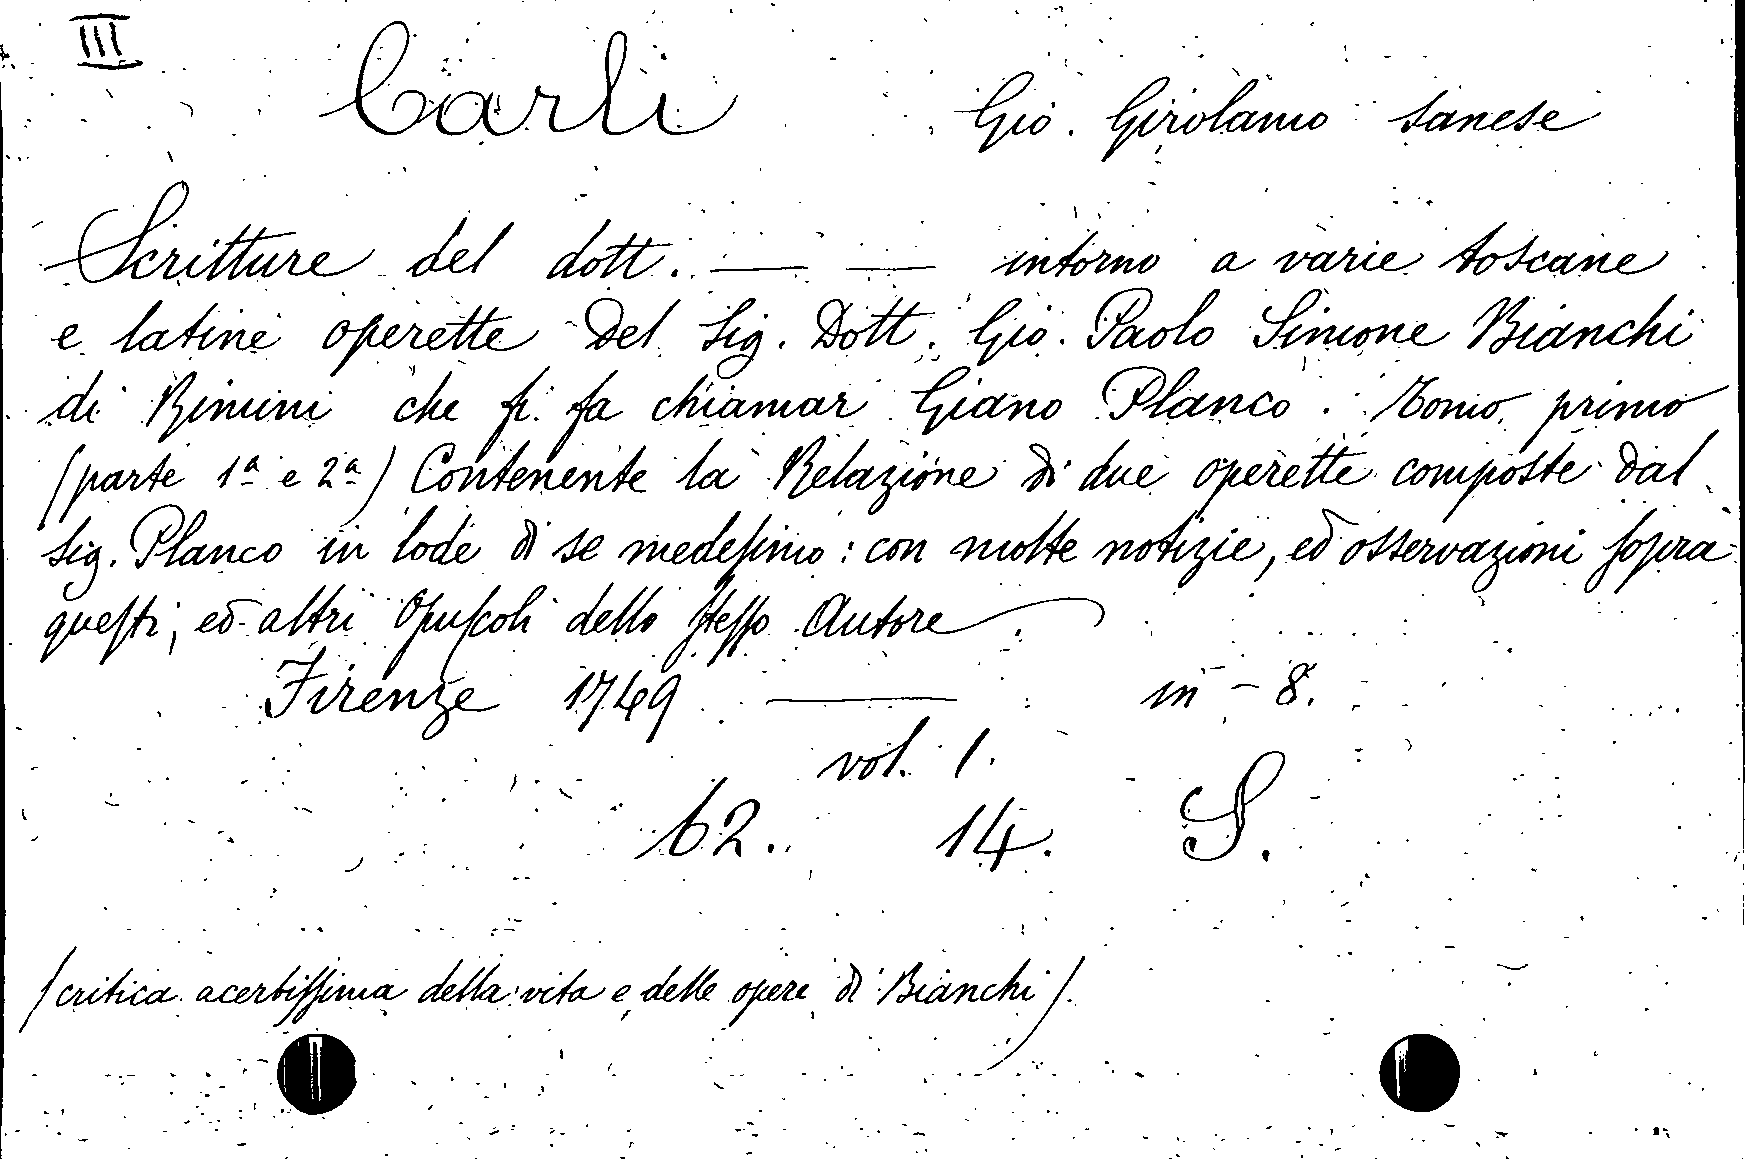 III
Carli Gio. Girolamo sanese
Scritture del dott. — — intorno a varie toscane
e latine operette del Sig. Dott. Gio. Paolo Simone Bianchi
di Rimini che ſi fa chiamar Giano Planco. Tomo primo
(parte 1ª e 2ª) Contenente la Relazione di due operette composte dal
Sig. Planco in lode di se medeſimo: con molte notizie, ed osservazioni ſopra
queſti, ed altri Opuſcoli dello ſteſſo Autore.
Firenze 1749 — in-8.
vol. 1.
62. 14. S.
(critica acerbiſſima della vita e delle opere di Bianchi).